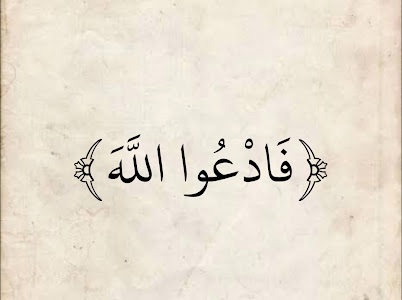 ﴿فَادْعُوا اللَّهَ﴾